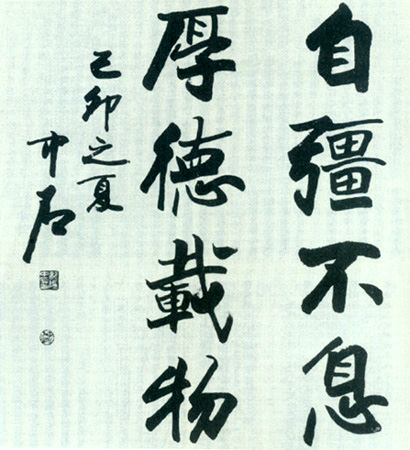 自彊不息
厚德載物
己卯之夏
中石